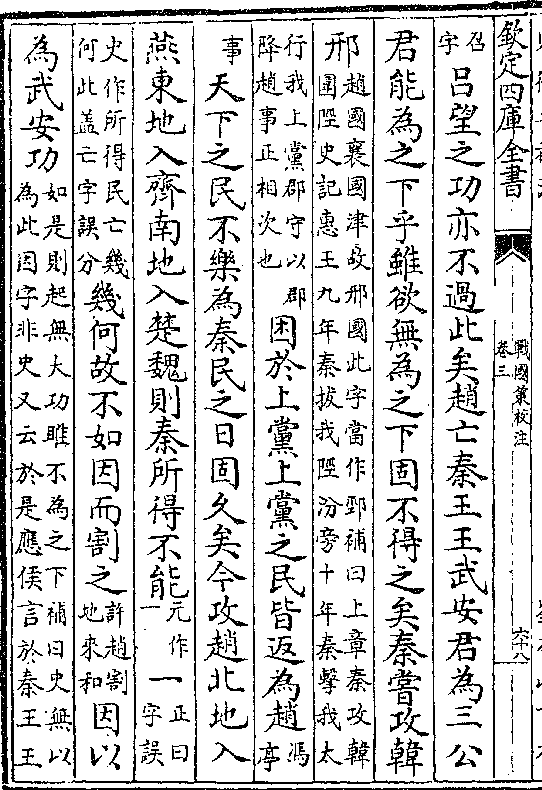 欽定四庫全書
戰國策校注
卷三
六十八
召
字
呂望之功亦不過此矣趙亡秦王王武安君為三公
君能為之下乎雖欲無為之下固不得之矣秦嘗攻韓
邢
趙國襄國津故邢國此字當作補曰上章秦攻韓
圍陘史記惠王九年秦拔我陘汾旁十年秦擊我太
行我上黨郡守以郡
降趙事正相次也
困於上黨上黨之民皆返為趙
馮
亭
事
天下之民不樂為秦民之日固久矣今攻趙北地入
燕東地入齊南地入楚魏則秦所得不能
元作
一
一
正曰
字誤
史作所得民亡幾
何此蓋亡字誤分
幾何故不如因而割之
許趙割
地來和
因以
為武安功
如是則起無大功雎不為之下補曰史無以
為此因字非史又云於是應侯言於秦王王